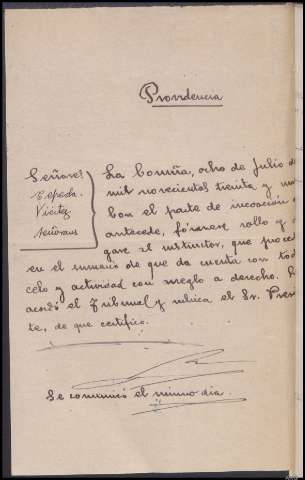 Providencia
Señores
Cepeda
Vieitez
Señoraus
La Coruña, ocho de Julio de
mil novecientos treinta y un
Con el parte de incoación
antecede, fórmese rollo y
gase al instructor, que proce
en el sumario de que da cuenta con tod
celo y actividad con arreglo a derecho. Lo
acordó el Tribunal y rubrica el Sr. Presi
te, de que certifico.
Se comunicó el mismo día.